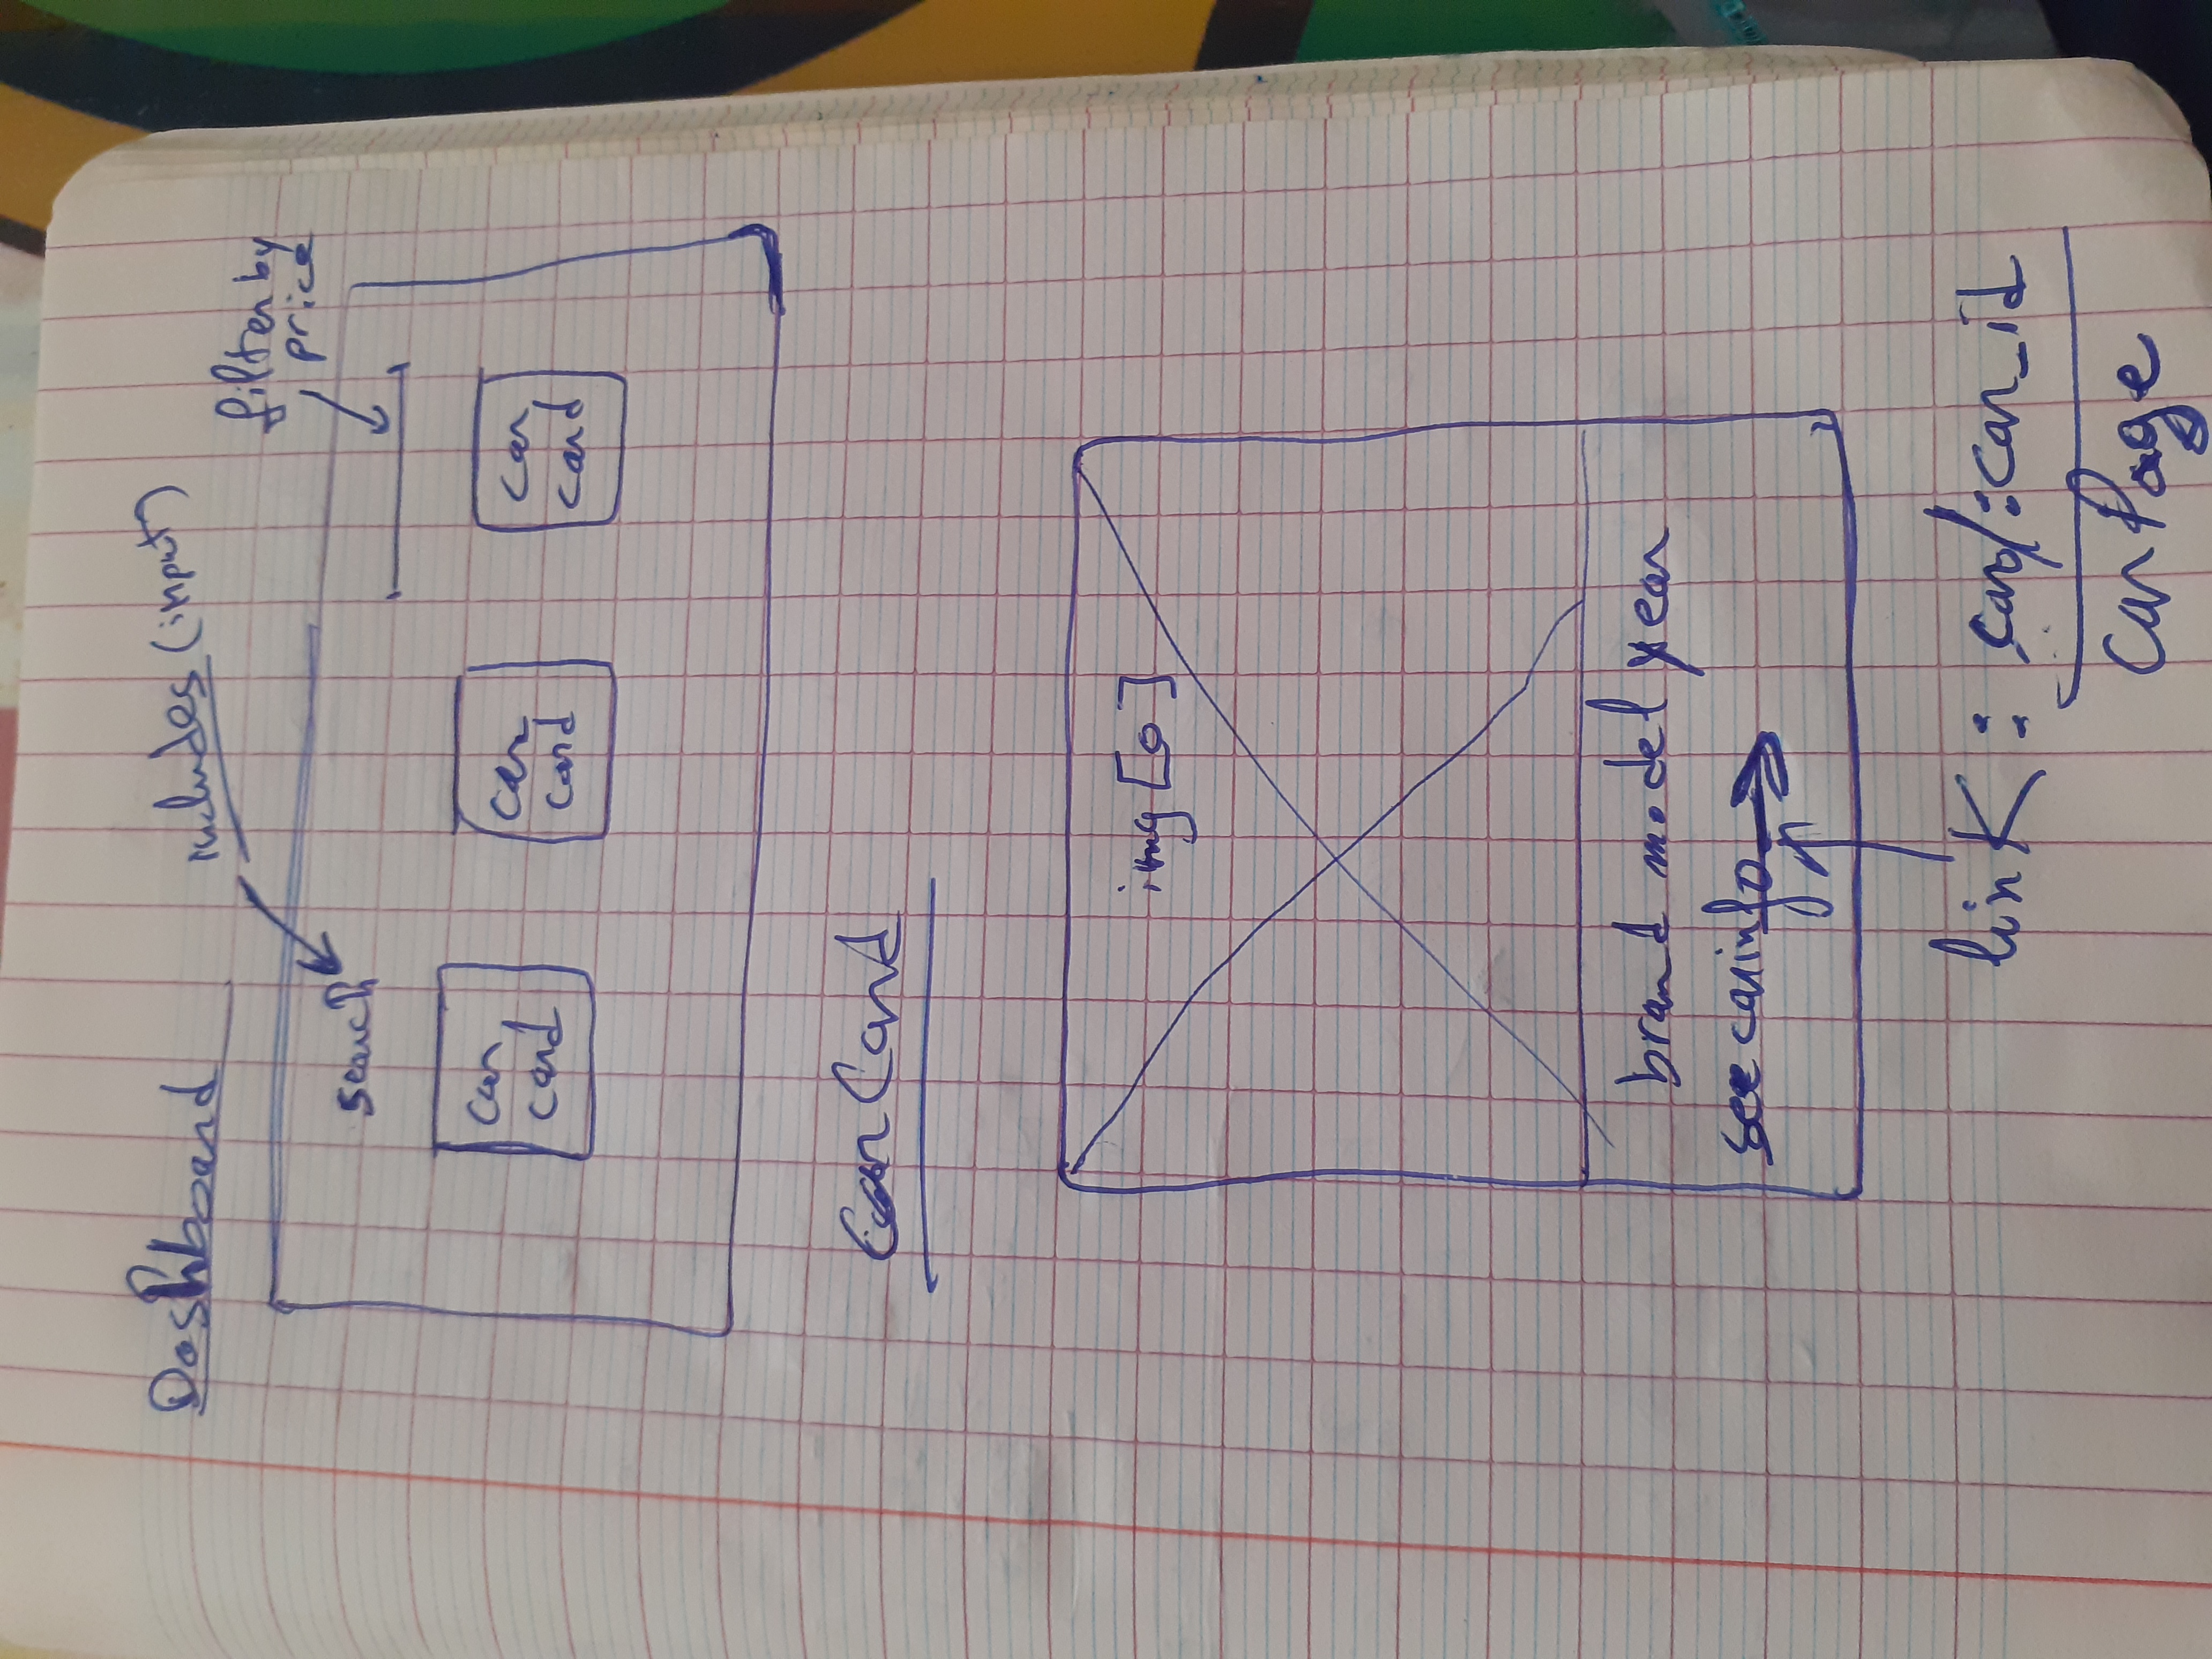 Dashboard
includes (input)
filter by
price
search
car
card
car
card
car
card
Car Card
img [0]
brand model year
see car info
link : car/:car_id
Car Page